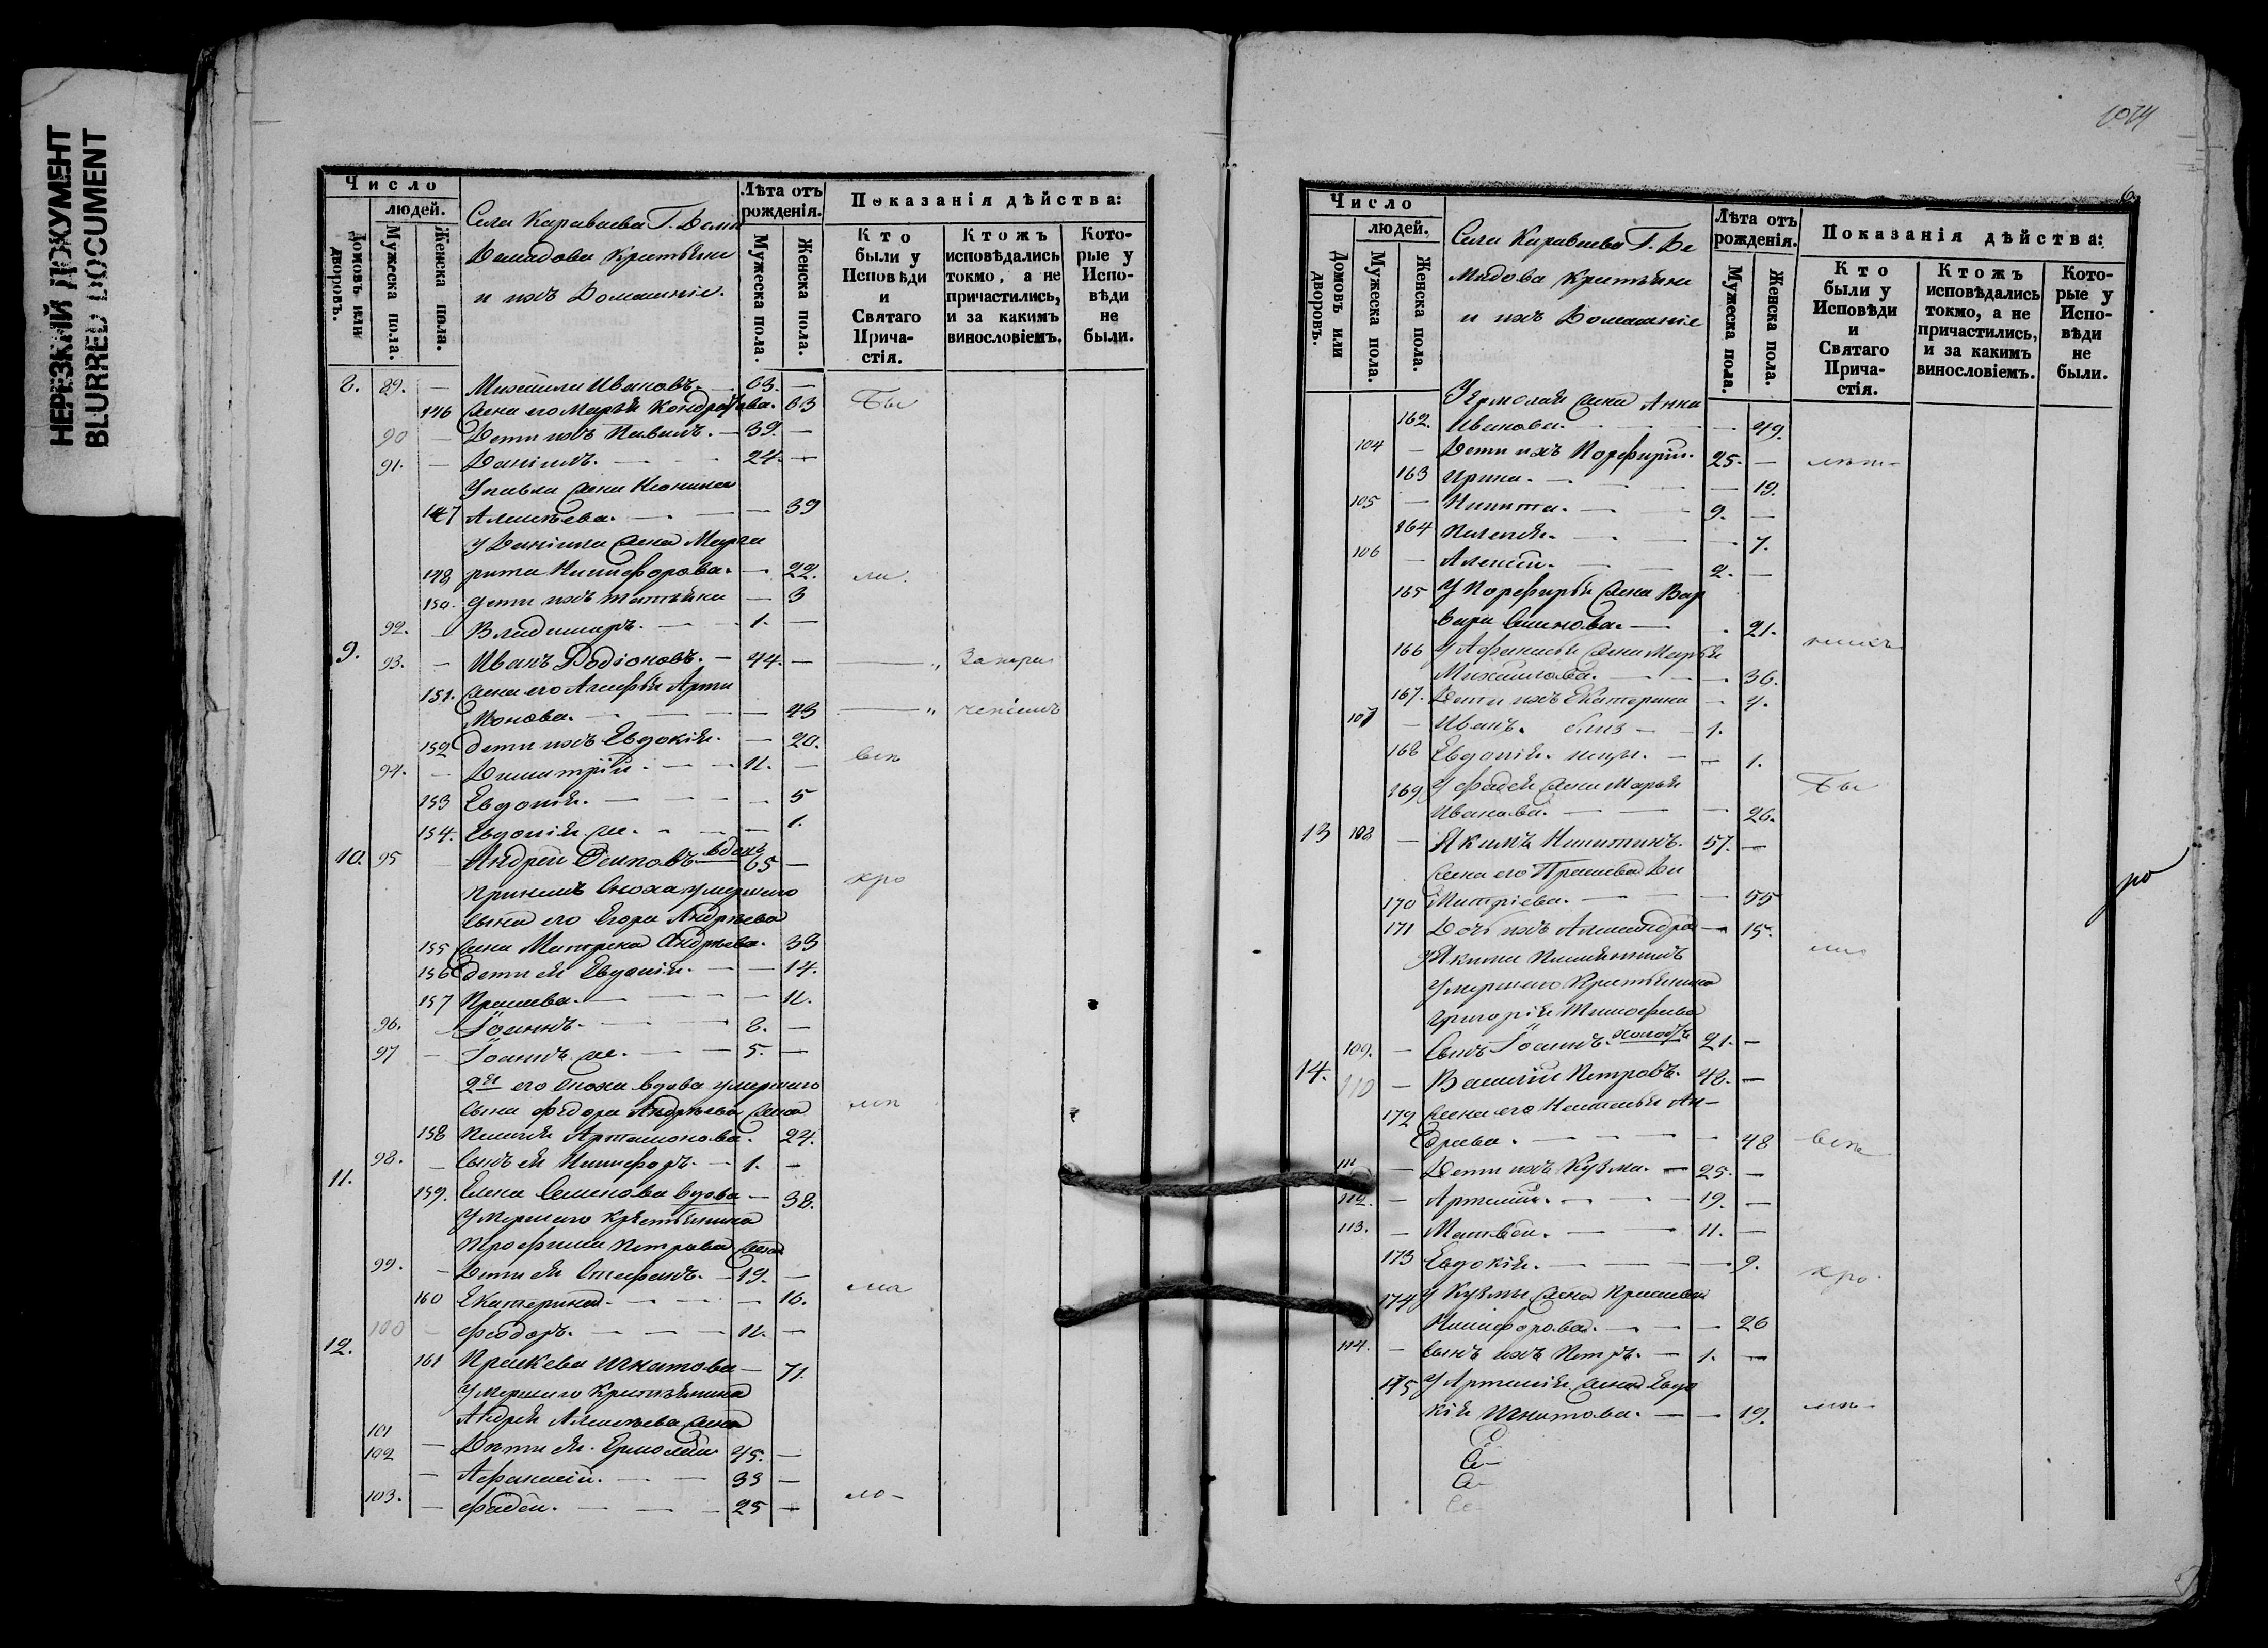 НЕРЕЗКИЙ ДОКУМЕНТ
BLURRED DOCUMENT
Число
людей.
Домовъ или дворовъ.
Мужеска пола.
Женска пола.
Села Караваева Г.
Демидова Крестьяне
и ихъ Домашніе.
Лѣта отъ рожденія.
Мужеска пола.
Женска пола.
Показанія дѣйства:
Кто были у Исповѣди и Святаго Причастія.
Ктожъ исповѣдались токмо, а не причастились, и за какимъ винословіемъ.
Которые у Исповѣди не были.
8. 89. — Михаилъ Ивановъ. — 63. —
146 Жена его Марья Кондратьева. 63 Бы
90 — Дети ихъ Павелъ. — 39. —
91. — Даніилъ. — 24. —
У Павла жена
147 Алексѣева. — — 39
У Даніила жена Марга
148 рита Никифорова. — 22. ли
150. дети ихъ Татьяна — 3
92. — Владимиръ. — 1. —
9. 93. — Иванъ Родіоновъ. — 44. —
151. Жена его Агафья Арта
монова. — — 43
152 Дети ихъ Евдокія. — 20.
94. — Димитрій — 11. —
153 Евдокія. — — 5
154. Евдокія же. — — 1.
10. 95 Андрей Осиповъ вдовъ 65 —
умершаго
сына его Егора Андрѣева
155 Жена Матрена Андрѣева. 33
156 Дети ея Евдокія. — — 14.
157 Праскева. — — 11.
96. — Іоаннъ. — 8. —
97 — Іоаннъ же. — 5. —
2я его сноха вдова умершаго
сына Федора Андрѣева жена
158 Пелагея Артамонова. 24.
98. — Сынъ ея Никифоръ. — 1. —
11.
159. Елена Семенова вдова — 38.
Умершаго Крестьянина
Трофима Петрова жена
99. — Дети ея Стефанъ. — 19. —
160 Екатерина. — — 16.
100 — Феодоръ. — — 11. —
12.
161 Праскева Игнатова — 71.
Умершаго Крестьянина
Андрея Алексѣева жена
101
102 — Дѣти ея. Ермолай 45. —
— Афанасій. — 33 —
103. — Фадей. — 25 —
1074
6.
Число
людей.
Домовъ или дворовъ.
Мужеска пола.
Женска пола.
Села Караваева Г. Де
мидова Крестьяне
и ихъ Домашніе
Лѣта отъ рожденія.
Мужеска пола.
Женска пола.
Показанія дѣйства:
Кто были у Исповѣди и Святаго Причастія.
Ктожъ исповѣдались токмо, а не причастились, и за какимъ винословіемъ.
Которые у Исповѣди не были.
У Ермолая жена Анна
162. Иванова. — — 49.
104 — Дети ихъ Порфирій. 25. —
163 Ирина. — — 19.
105 — Никита. — 9. —
164 Пелагея. — — 7.
106 — Алексей. — 2. —
165 У Порфирья жена Вар
вара Семенова. — 21.
166 У Афанасья жена Марья
Михайлова. — — 36.
167. Дети ихъ Екатерина — 4.
107 — Иванъ. близ — 1.
168 Евдокія. нецы. — — 1.
169 У Фадея жена Марья Бы
Иванова. — — 26.
13 108 — Якимъ Никитинъ. 57. —
Жена его Праскева Ди
170 митріева. — — 55
171 Дочь ихъ Александра — 15.
У Якима
Умершаго Крестьянина
Григорія Тимофеева
109. — Сынъ Іоаннъ. холостъ 21. —
14.
110 — Василій Петровъ. 48. —
172 Жена его Наталья Ан-
дреева. — — 48
111 — Дети ихъ Кузма. — 25. —
112. — Артемій. — 19. —
113. — Матвѣй. — 11. —
173 Евдокія. — — 9.
174 У Кузмы жена Праскева
Никифорова. — — 26
114. — Сынъ ихъ Петръ. — 1. —
175 У Артемія жена Евдо
кія Игнатова. — — 19.
ро